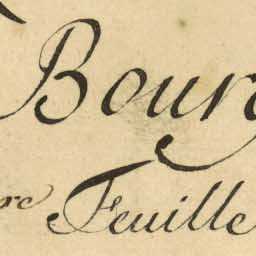 Bourg
re Feuille